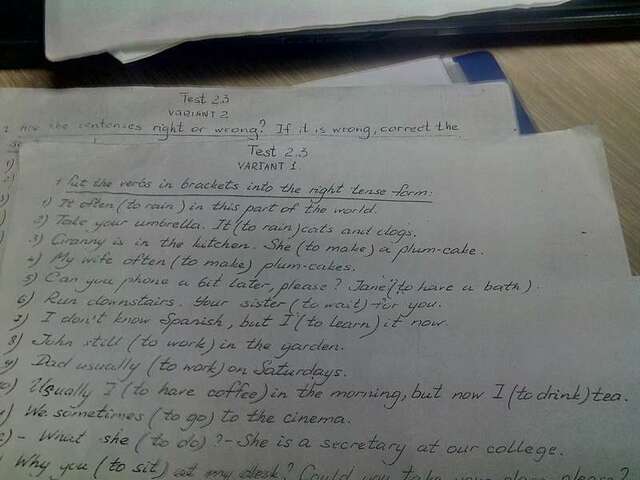 Test 2.3
VARIANT 2
1 Are the sentences right or wrong? If it is wrong, correct the
Test 2.3
VARIANT 1.
1 Put the verbs in brackets into the right tense-form:
1) It often (to rain) in this part of the world.
2) Take your umbrella. It (to rain) cats and dogs.
3) Granny is in the kitchen. She (to make) a plum-cake.
4) My wife often (to make) plum-cakes.
5) Can you phone a bit later, please? Jane (to have a bath).
6) Run downstairs. Your sister (to wait) for you.
7) I don't know Spanish, but I (to learn) it now.
8) John still (to work) in the garden.
9) Dad usually (to work) on Saturdays.
10) Usually I (to have coffee) in the morning, but now I (to drink) tea.
We sometimes (to go) to the cinema.
- What she (to do)? - She is a secretary at our college.
Why you (to sit) at my desk? Could you take your place please?